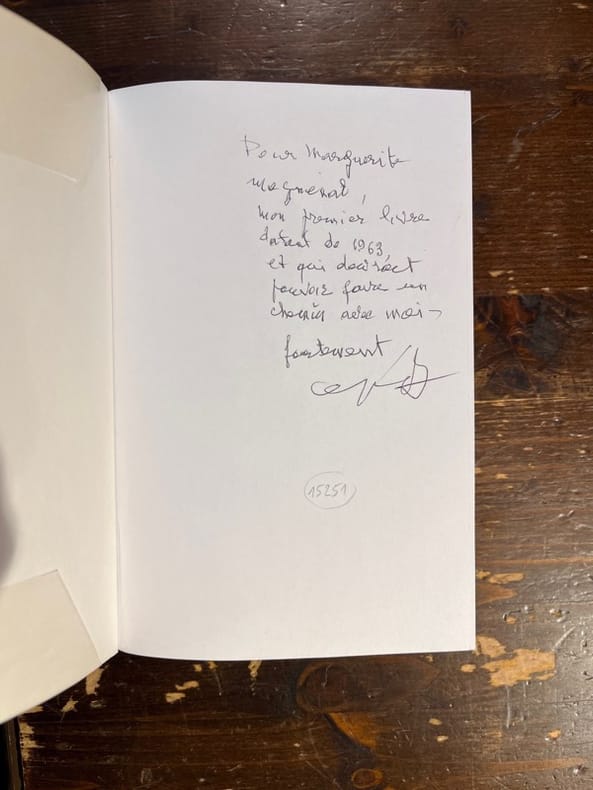 Pour Marguerite
mon premier livre
datent de 1963,
et qui devrait
pouvoir faire un
chemin avec moi
fortement
15251